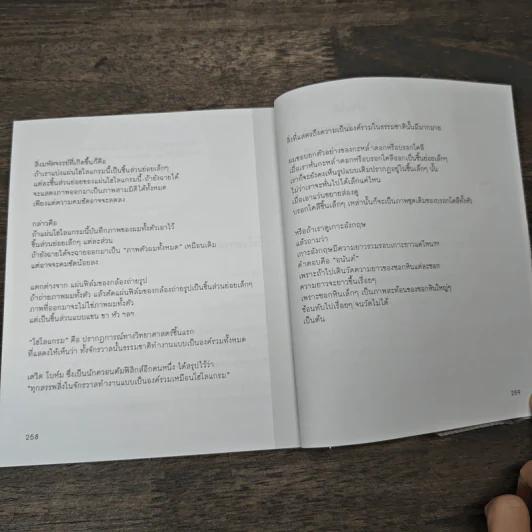 สิ่งมหัศจรรย์ที่เกิดขึ้นก็คือ
ถ้าเราแบ่งแผ่นโฮโลแกรมนี้เป็นชิ้นส่วนย่อยเล็กๆ
แต่ละชิ้นส่วนย่อยของแผ่นโฮโลแกรมนี้ ถ้ายังฉายได้
จะแสดงภาพออกมาเป็นภาพสามมิติได้ทั้งหมด
เพียงแต่ความคมชัดอาจจะลดลง
กล่าวคือ
ถ้าแผ่นโฮโลแกรมนี้บันทึกภาพของผมทั้งตัวเอาไว้
ชิ้นส่วนย่อยเล็กๆ แต่ละส่วน
ถ้ายังฉายได้จะฉายออกมาเป็น "ภาพตัวผมทั้งหมด" เหมือนเดิม
แต่อาจจะคมชัดน้อยลง
แตกต่างจาก แผ่นฟิล์มของกล้องถ่ายรูป
ถ้าถ่ายภาพผมทั้งตัว แล้วตัดแผ่นฟิล์มของกล้องถ่ายรูปเป็นชิ้นส่วนย่อยเล็กๆ
ภาพที่ออกมาจะไม่ใช่ภาพผมทั้งตัว
แต่เป็นชิ้นส่วนแบบแขน ขา หัว ฯลฯ
"โฮโลแกรม" คือ ปรากฏการณ์ทางวิทยาศาสตร์ชิ้นแรก
ที่แสดงให้เห็นว่า ทั้งจักรวาลนั้นธรรมชาติทำงานแบบเป็นองค์รวมทั้งหมด
เดวิด โบห์ม ซึ่งเป็นนักควอนตัมฟิสิกส์อีกคนหนึ่ง ได้สรุปไว้ว่า
"ทุกสรรพสิ่งในจักรวาลทำงานแบบเป็นองค์รวมเหมือนโฮโลแกรม"
258
สิ่งที่แสดงถึงความเป็นองค์รวมในธรรมชาตินั้นมีมากมาย
ผมขอยกตัวอย่างของกะหล่ำดอกหรือบรอกโคลี
เมื่อเราหั่นกะหล่ำดอกหรือบรอกโคลีออกเป็นชิ้นย่อยเล็กๆ
เราก็จะยังคงเห็นรูปแบบเดิมปรากฏอยู่ในชิ้นเล็กๆ นั้น
ไม่ว่าเราจะหั่นไปได้เล็กแค่ไหน
เมื่อเอาแว่นขยายส่องดู
บรอกโคลีชิ้นเล็กๆ เหล่านั้นก็จะเป็นภาพชุดเดิมของบรอกโคลีทั้งหัว
หรือถ้าเราดูเกาะอังกฤษ
แล้วถามว่า
เกาะอังกฤษมีความยาวรวมรอบเกาะยาวแค่ไหน?
คำตอบคือ "อนันต์"
เพราะถ้าไปเดินวัดความยาวของซอกหินแต่ละซอก
ความยาวจะยาวขึ้นเรื่อยๆ
เพราะซอกหินเล็กๆ เป็นภาพสะท้อนของซอกหินใหญ่ๆ
ซ้อนทับไปเรื่อยๆ จนวัดไม่ได้
เป็นต้น
259